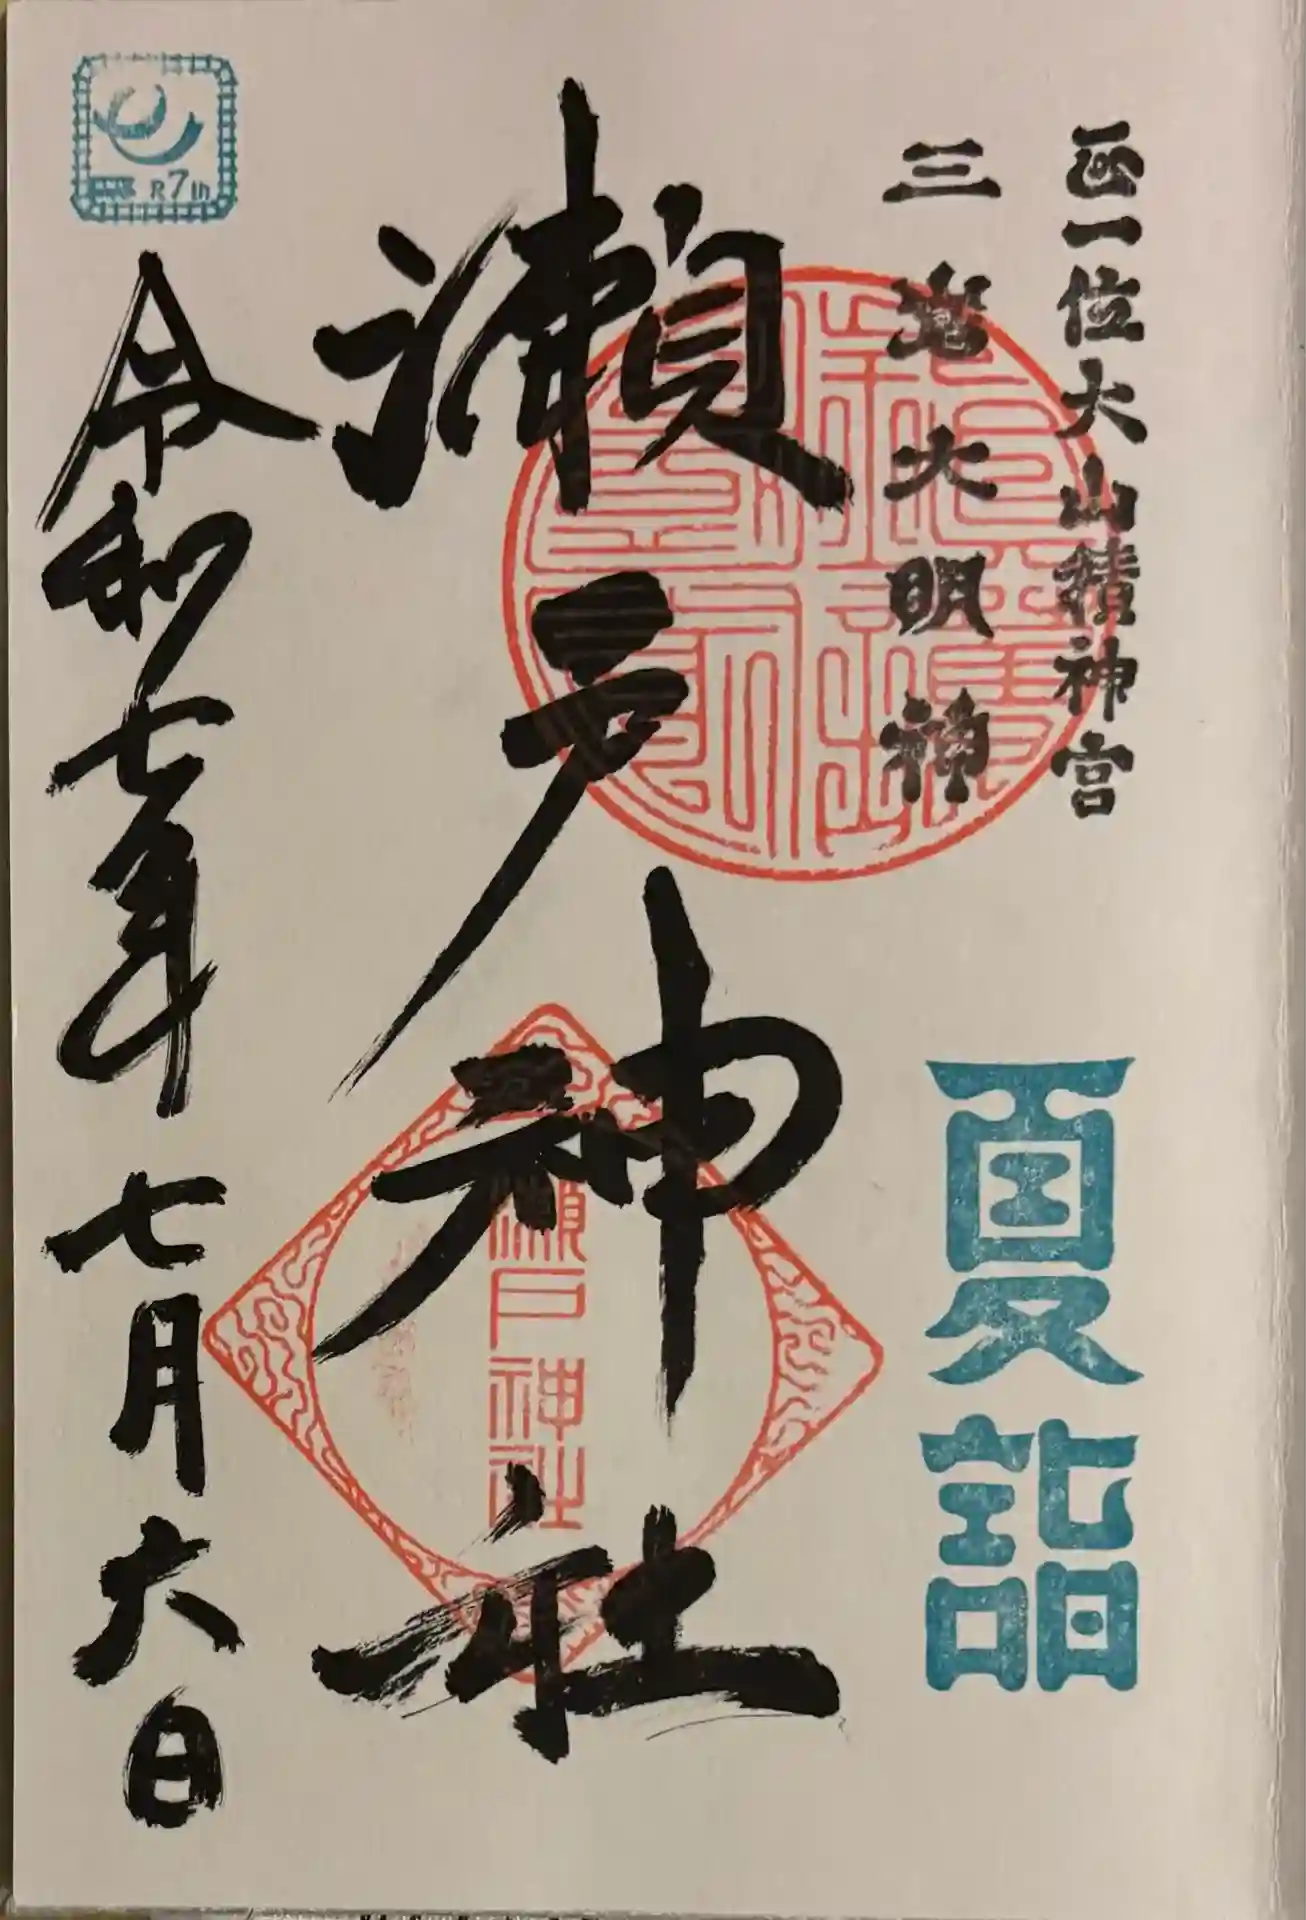 正一位大山積神宮
三嶌大明神
夏詣
瀬戸神社
瀬戸神社
R7th
令和七年七月六日